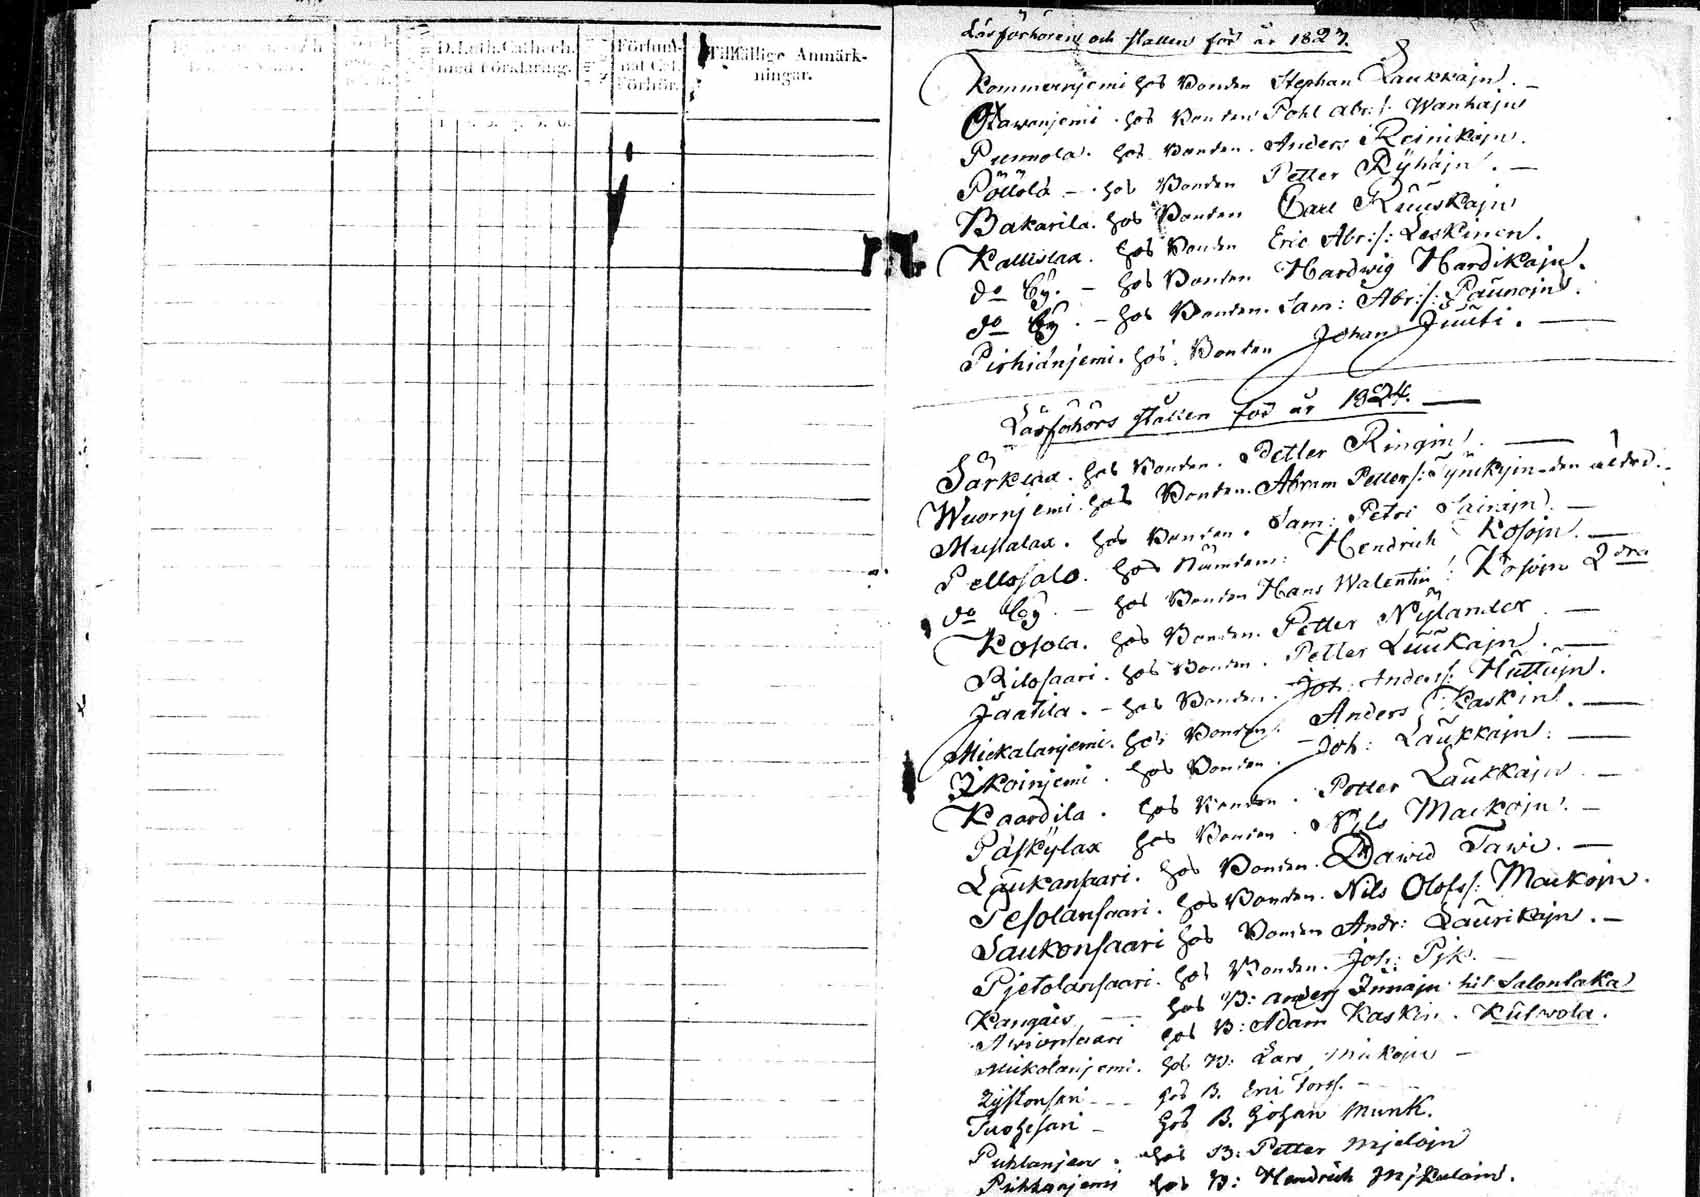 D. Luth. Cathech.
med Förklaring.
Försum-
mat Cat.
Förhör.
Tillfällige Anmärk-
ningar.
Läsförhören och ställen för år 1823.
Kommernjemi hos Bonden Stephan Laukkajn.
hos Bonden Pohl Abr:s: Wanhajn
Punnola. hos Bonden. Anders Reinikajn.
Pöllölä - hos Bonden Petter Ryhäjn. -
Bakarila. hos Bonden Carl Ruuskajn
Kallislax. hos Bonden Eric Abr:s: Leskinen.
do By. - hos Bonden Hardwig Hardikajn.
do By. - hos Bonden. Sam: Abr:s: Paunojn.
Pirhiänjemi. hos Bonden Johan Juuti. -
Läsförhörs ställen för år 1824. -
Särkilax. hos Bonden. Petter Ringin. -
Wuornjemi. hos Bonden. Abram Petters: Tynkkyin den äldre.
Mustalax. hos Bonden. Sam: Petri -
Pellosalo. hos Nämdem: Hendrich Kosojn. -
do By. - hos Bonden Hans Walentin: Kosojn 2dra
Kosola. hos Bonden. Petter Nylander. -
Ritosaari. hos Bonden. Petter Luukajn. -
Jaatila. - hos Bonden. Joh: Anders: Huttujn.
Mickalanjemi. hos Bonden. Anders Kaskin. -
hos Bonden. - Joh: Laukkajn. -
Kaardila. hos Bonden. Petter Laukkajn. -
Päskylax hos Bonden. Nils Mackojn. -
Laukansaari. hos Bonden. Dawid Tawi. -
Pesolansaari. hos Bonden. Nils Olofs: Mackojn.
Laukonsaari hos Bonden Andr: Laurikajn. -
Pjetolansaari. hos Bonden. Joh: Pjk. -
Kangais - hos B: Anders Innajn til Salonlaka
hos B: Adam Kaskin. Kulwola.
Mickolanjemi. hos B: Lars Mickojn -
hos B. Eric Forss. -
Tuohisari - hos B. Johan Munk.
hos B: Petter Mjelojn
Puhkanjemi hos B: Hendrich